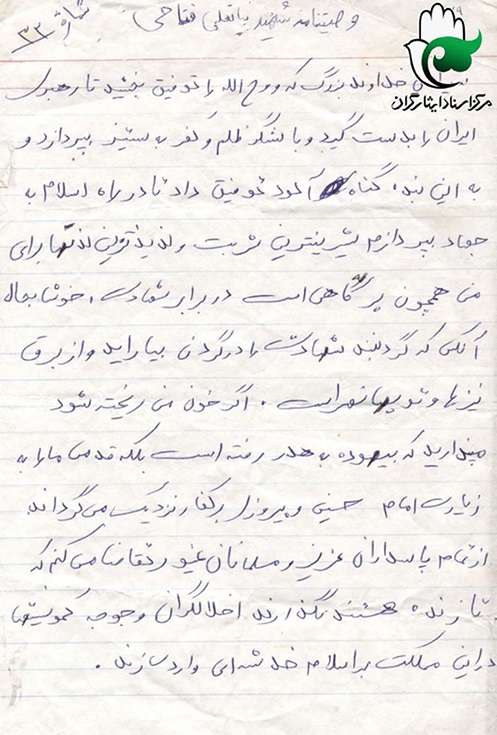 وصیتنامه شهید نیاتعلی فتاحی
۳۳
مرکز اسناد ایثارگران
خداوند بزرگ که روح الله را توفیق بخشید تا رهبری
ایران را بدست گیرد و با لشگر ظلم و کفر به ستیز بپردازد و
به این بنده گناه آلود توفیق داد تا در راه اسلام به
جهاد بپردازم شیرینترین شربت و لذیذترین لذتها برای
من همچون پر گاهی است در برابر شهادت، خوشا بحال
آنکس که گردنبند شهادت را در گردن بیاراید و از برق
نیزها و توپها نهراسد. اگر خون من ریخته شود
مپندارید که بیهوده به هدر رفته است بلکه قدمی ما را به
زیارت امام حسین و پیروزی بر کفار نزدیک می‌گرداند
از تمام پاسداران عزیز و مسلمانان غیور تقاضا می‌کنم که
تا زنده هستند نگذارند اخلالگران و جوجه کمونیستها
در این مملکت بر اسلام خدشه‌ای وارد سازند.